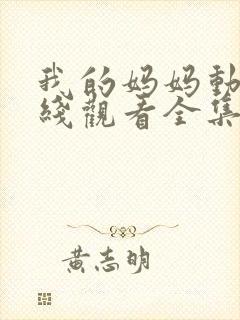 我的妈妈動
綫觀看全集
黄志明